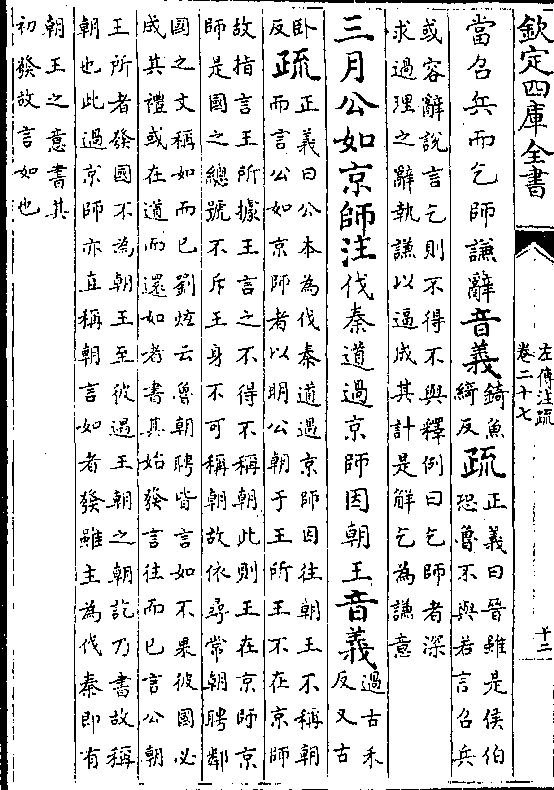 欽定四庫全書
左傳注疏
卷二十七
十二
當召兵而乞師謙辭音義錡魚
綺反疏正義曰晉雖是侯伯
恐魯不與若言召兵
或容辭說言乞則不得不與釋例曰乞師者深
求過理之辭執謙以逼成其計是解乞為謙意
三月公如京師注伐秦道過京師因朝王音義過古禾
反又古
卧
反疏正義曰公本為伐秦道過京師因往朝王不稱朝
而言公如京師者以明公朝于王所王不在京師
故指言王所據王言之不得不稱朝此則王在京師京
師是國之總號不斥王身不可稱朝故依尋常朝聘鄰
國之文稱如而已劉炫云魯朝聘皆言如不果彼國必
成其禮或在道而還如者書其始發言往而已言公朝
王所者發國不為朝王至彼過王朝之朝訖乃書故稱
朝也此過京師亦直稱朝言如者發雖主為伐秦即有
朝王之意書其
初發故言如也